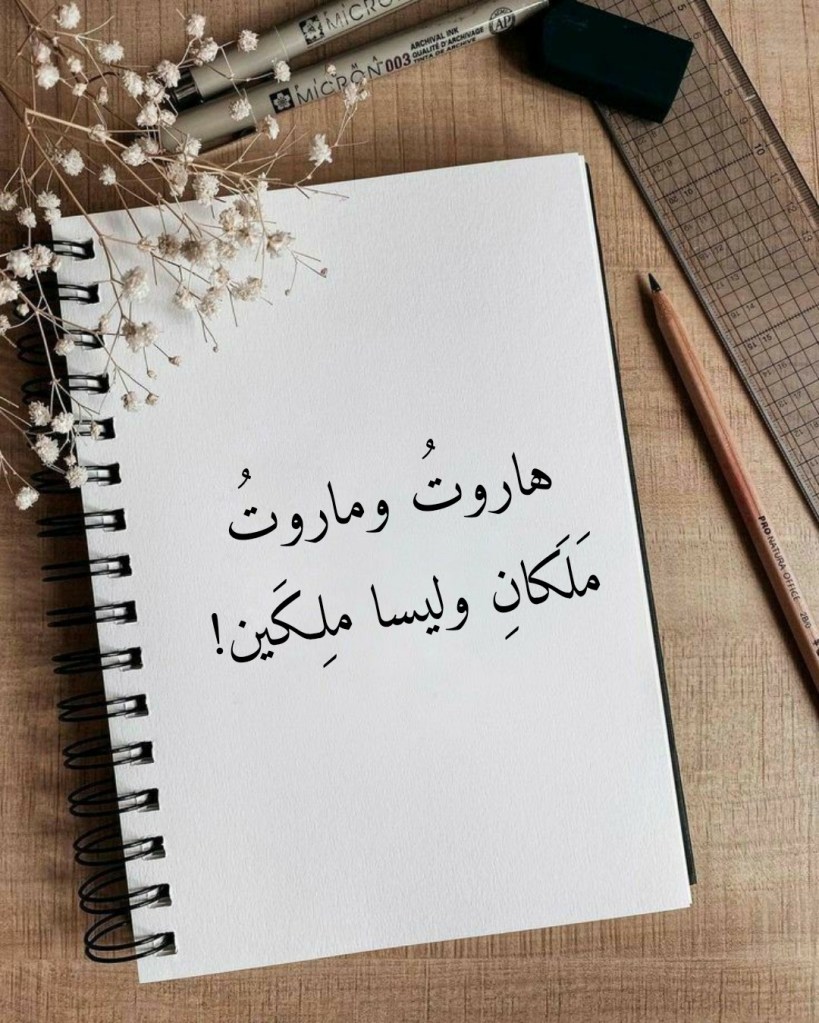 MICRON
MICRON 003 ARCHIVAL INK
QUALITÉ D'ARCHIVAGE
TINTA DE ARCHIVE
AP
هاروتُ وماروتُ
مَلَكانِ وليسا ملِكَين!
PRO NATURA·OFFICE 2B/0